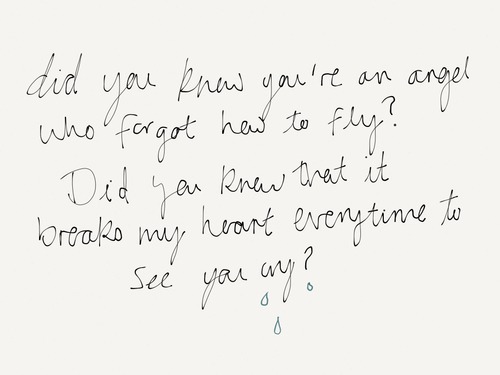 did you know you're an angel
who forgot how to fly?
Did you know that it
breaks my heart everytime to
see you cry?